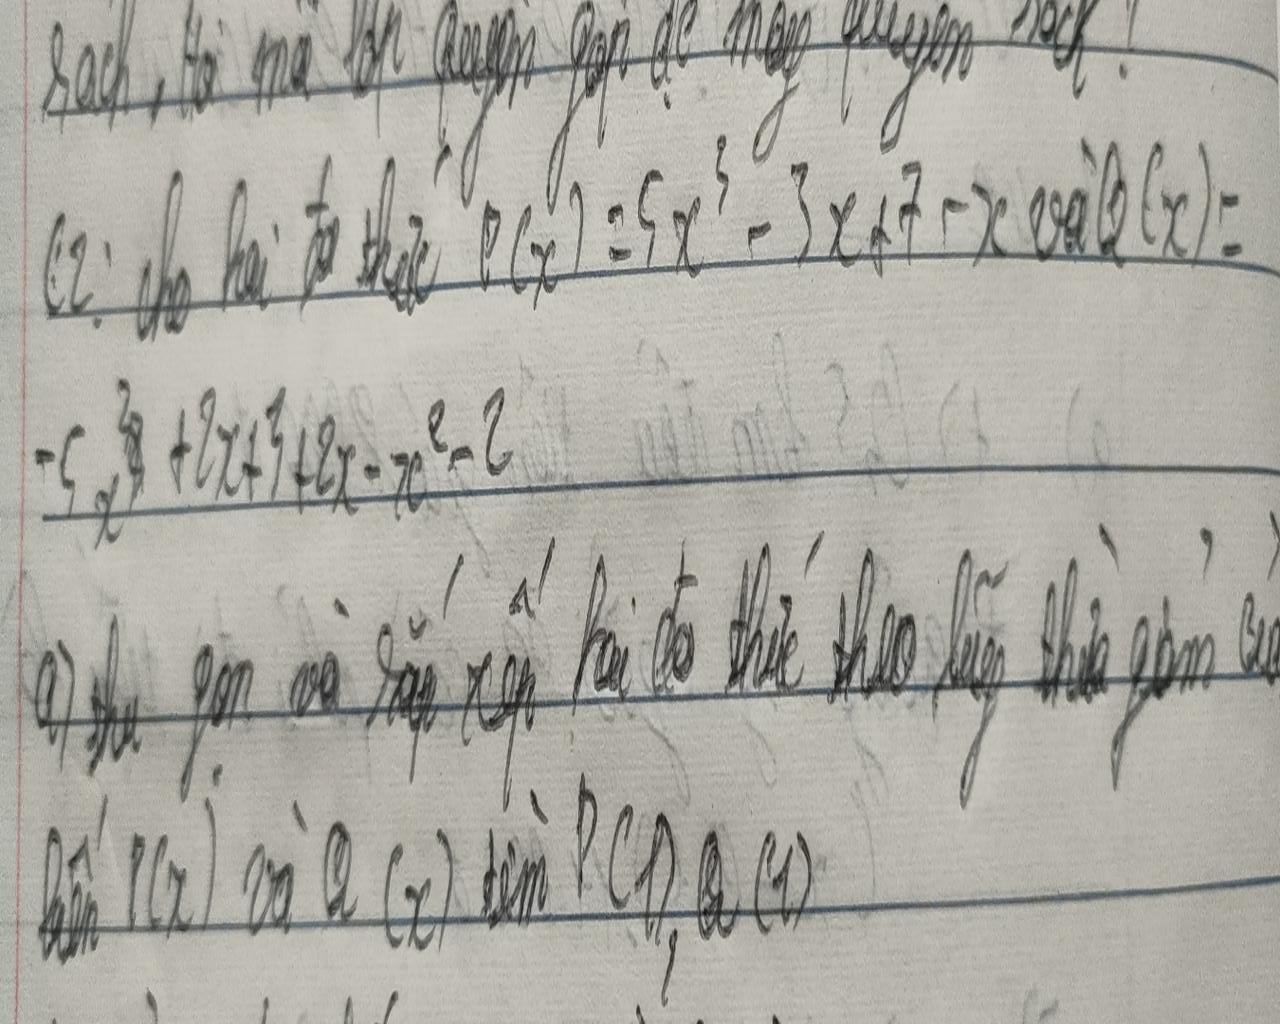 sách, hỏi mỗi lớp quyên góp đc mấy quyển sách?
C2: cho hai đa thức P(x) = 5x³ - 3x + 7 - x và Q(x) =
-5x³ + 2x + 3 + 2x - x² - 2
a) thu gọn và sắp xếp hai đa thức theo luỹ thừa giảm của
biến P(x) và Q(x) tìm P(1), Q(1)